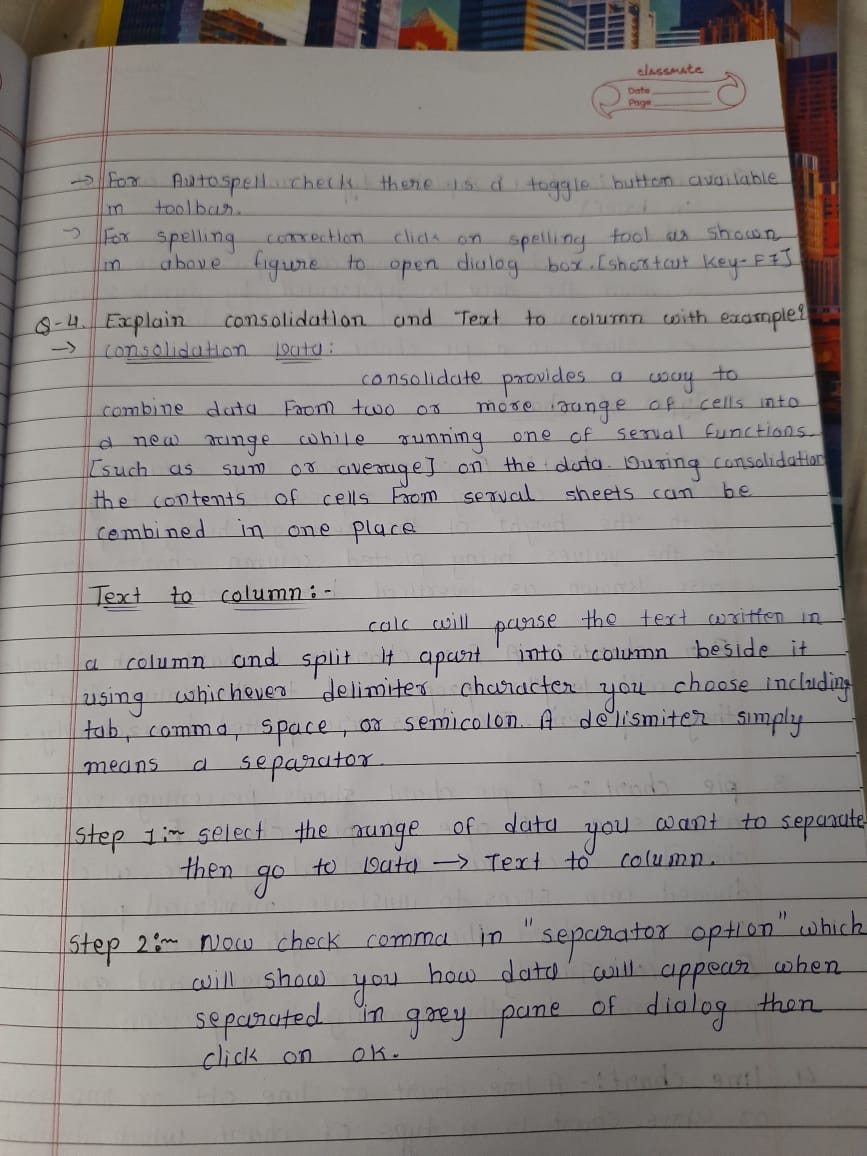 classmate
Date
Page
→ For Autospell check there is a toggle button available
in toolbar.
→ For spelling correction click on spelling tool as shown
in above figure to open dialog box. [shortcut key- F7]
Q-4. Explain consolidation and Text to column with example?
→ consolidation Data:
consolidate provides a way to
combine data From two or more range of cells into
a new range while running one of serval functions.
[such as sum or average] on the data. During consolidation
the contents of cells From serval sheets can be
combined in one place
Text to column:-
calc will parse the text written in
a column and split it apart into column beside it
using whichever delimiter character you choose including
tab, comma, space, or semicolon. A delismiter simply
means a separator.
Step 1:~ select the range of data you want to separate
then go to Data → Text to column.
Step 2:~ Now check comma in "separator option" which
will show you how data will appear when
separated in grey pane of dialog then
click on ok.